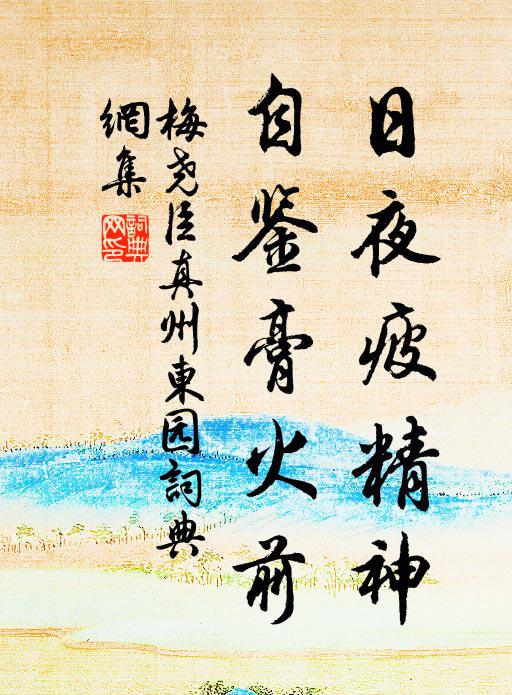 日夜疲精神
自鉴膏火前
梅尧臣真州東园詞典
網集
詞典
网印